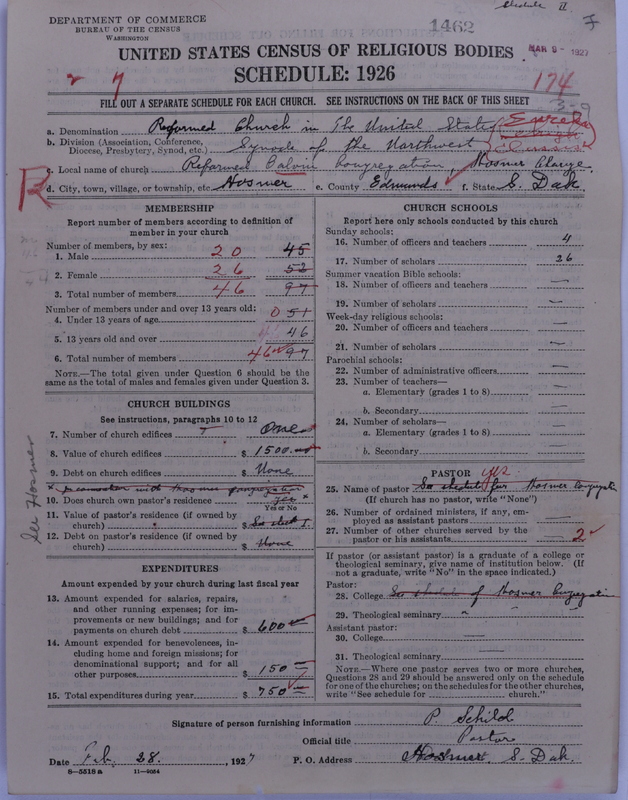 Schedule II.
DEPARTMENT OF COMMERCE
BUREAU OF THE CENSUS
WASHINGTON
1462
MAR 9 - 1927
UNITED STATES CENSUS OF RELIGIOUS BODIES
SCHEDULE: 1926
7
174
3-9
FILL OUT A SEPARATE SCHEDULE FOR EACH CHURCH. SEE INSTRUCTIONS ON THE BACK OF THIS SHEET
a. Denomination Reformed Church in The United States Eureka
b. Division (Association, Conference, Diocese, Presbytery, Synod, etc.) Synod of the Northwest Classis
c. Local name of church Reformed Calvin Congregation, Hosmer Charge
R
d. City, town, village, or township, etc. Hosmer e. County Edmunds f. State S. Dak
MEMBERSHIP
Report number of members according to definition of
member in your church
Number of members, by sex:
1. Male 20 45
2. Female 26 52
3. Total number of members 46 97
Number of members under and over 13 years old:
4. Under 13 years of age 0 51
5. 13 years old and over 46
6. Total number of members 46 97
NOTE.—The total given under Question 6 should be the
same as the total of males and females given under Question 3.
CHURCH BUILDINGS
See instructions, paragraphs 10 to 12
7. Number of church edifices One
8. Value of church edifices $ 1500.00
9. Debt on church edifices $ None
10. Does church own pastor's residence yes
Yes or No
11. Value of pastor's residence (if owned by
church) $ See sched I.
12. Debt on pastor's residence (if owned by
church) $ None
See Hosmer
EXPENDITURES
Amount expended by your church during last fiscal year
13. Amount expended for salaries, repairs,
and other running expenses; for im-
provements or new buildings; and for
payments on church debt $ 600
14. Amount expended for benevolences, in-
cluding home and foreign missions; for
denominational support; and for all
other purposes $ 150
15. Total expenditures during year $ 750
CHURCH SCHOOLS
Report here only schools conducted by this church
Sunday schools:
16. Number of officers and teachers 4
17. Number of scholars 26
Summer vacation Bible schools:
18. Number of officers and teachers —
19. Number of scholars —
Week-day religious schools:
20. Number of officers and teachers —
21. Number of scholars —
Parochial schools:
22. Number of administrative officers —
23. Number of teachers—
a. Elementary (grades 1 to 8) —
b. Secondary —
24. Number of scholars—
a. Elementary (grades 1 to 8) —
b. Secondary —
PASTOR yes
25. Name of pastor See schedul for Hosmer Congregation
(If church has no pastor, write "None")
26. Number of ordained ministers, if any, em-
ployed as assistant pastors —
27. Number of other churches served by the
pastor or his assistants 2
If pastor (or assistant pastor) is a graduate of a college or
theological seminary, give name of institution below. (If
not a graduate, write "No" in the space indicated.)
Pastor:
28. College See schedule of Hosmer Congregation
29. Theological seminary "
Assistant pastor:
30. College —
31. Theological seminary —
NOTE.—Where one pastor serves two or more churches,
Questions 28 and 29 should be answered only on the schedule
for one of the churches; on the schedules for the other churches,
write "See schedule for church."
Signature of person furnishing information P. Schild
Official title Pastor
Date Feb. 28. , 1927 P. O. Address Hosmer S. Dak.
8—5518 a 11—9054